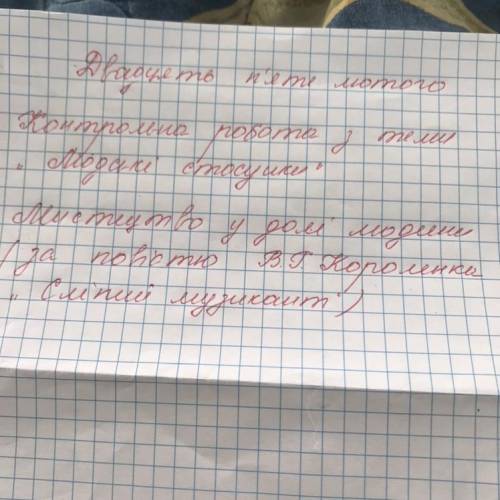 Двадцять п'яте лютого
Контрольна робота з теми
„Людські стосунки"
Мистецтво у долі людини
(за повістю В.Г. Короленка
„Сліпий музикант")